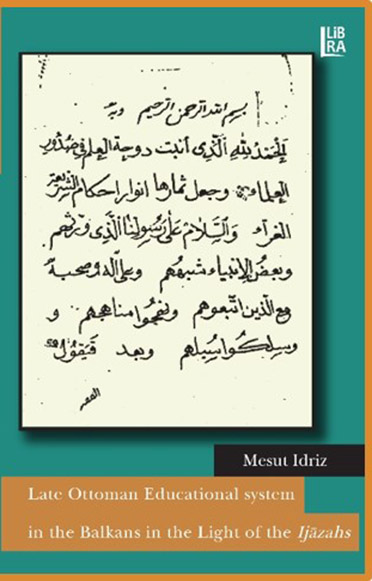 LiB
RA
بسم الله الرحمن الرحيم وبه
الحمد لله الذي انبت دوحة العلم في صدور
العلماء وجعل ثمارها انوار احكام الشريعة
الغراء والسلام على رسولنا الذي
وبعض الانبياء شبههم وعلى اله وصحبه
مع الذين اتبعوهم ونهجوا مناهجهم و
وسلكوا سبلهم وبعد فيقول
Mesut Idriz
Late Ottoman Educational system
in the Balkans in the Light of the Ijāzahs